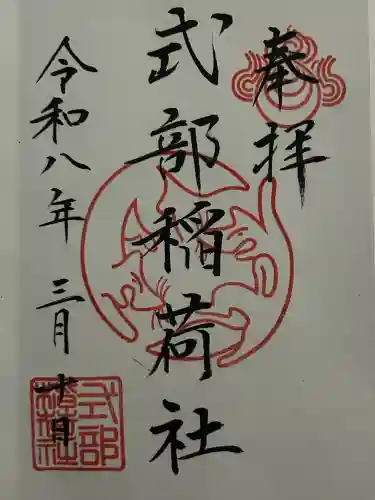 奉拝
式部稲荷社
令和八年 三月 十日
式部
稲荷社